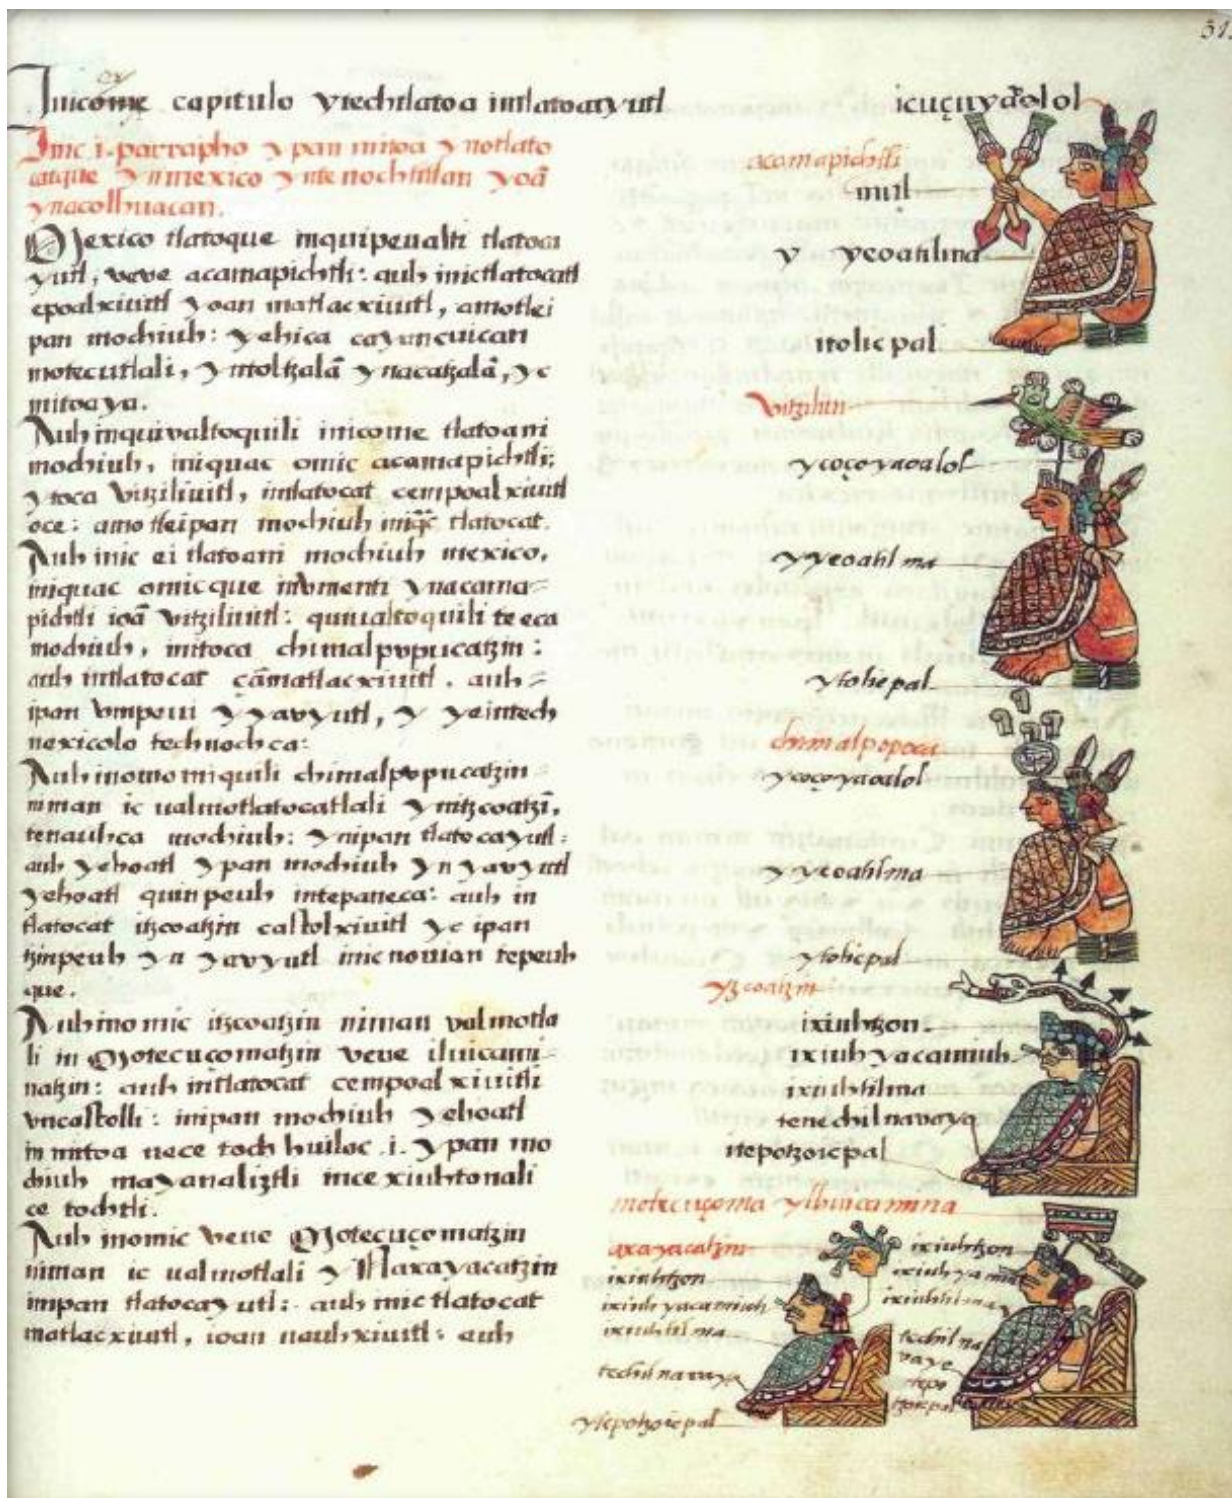 31.
ey
Inicome capitulo ytechtlatoa intlatocayutl
Inic .i. parrapho ypan mitoa ynotlato
catque ynmexico yntenochtitlan yoã
ynacolhuacan.
Mexico tlatoque inquipeualti tlatoca
yutl, veve acamapichtli: auh inictlatocatl
epoalxiuitl yoan matlacxiuitl, amotlei
pan mochiuh: yehica cayuncuican
motecutlali, yntoltzalã ynacatzalã, ye
mitoaya.
Auh inquivaltoquili inicome tlatoani
mochiuh, iniquac omic acamapichtli:
ytoca vitziliuitl, intlatocat cempoalxiuitl
oce: amotleipan mochiuh tlatocat.
Auh inic ei tlatoani mochiuh mexico,
iniquac omicque inomenti ynacama=
pichtli ioã vitziliuitl: quiualtoquili teeca
mochiuh, initoca chimalpupucatzin:
auh intlatocat cãmatlacxiuitl. auh=
ipan vmpeui yyavyutl, y yeintech
mexicolo technochca:
Auh inomomiquili chimalpupucatzin=
niman ic ualmotlatocatlali ynitzcoatzĩ,
tenauhca mochiuh: ynipan tlatocayutl:
auh yehoatl ypan mochiuh yn yavyutl
yehoatl quinpeuh intepaneca: auh in
tlatocat itzcoatzin castolxiuitl ye ipan
tzinpeuh yn yavyutl inicnouian tepeuh
que.
Auhinomic itzcoatzin niman valmotla
li in Motecuçomatzin veve iluicami=
natzin: auh intlatocat cempoalxiuitl
vncastolli: inipan mochiuh yehoatl
in mitoa nece tochhuiloc .i. ypan mo
chiuh mayanaliztli ince xiuhtonali
ce tochtli.
Auh inomic veve Motecuçomatzin
niman ic ualmotlali yn axayacatzin
inipan tlatocayutl: auh inic tlatocat
matlacxiuitl, ioan nauhxiuitl: auh
acamapichtli
y yeoatilma
itolicpal
vitzilin
ycoçoyaoalol
yyeoatilma
ytolicpal
chimalpopoca
ycoçoyaoalol
yyeoatilma
ytolicpal
yzcoatzin
ixiuhtzon.
ixiuhyacamiuh.
ixiuhtilma
tenechilnavayo
itepotzoicpal
motecuçoma ylhuicamina
axayacatzin
ixiuhtzon
ixiuhyacamiuh
ixiuhtilma
techilnavayo
ytepotzoicpal
ixiuhtzon
ixiuhtilma
techilna
vayo
itepo
tzoicpal